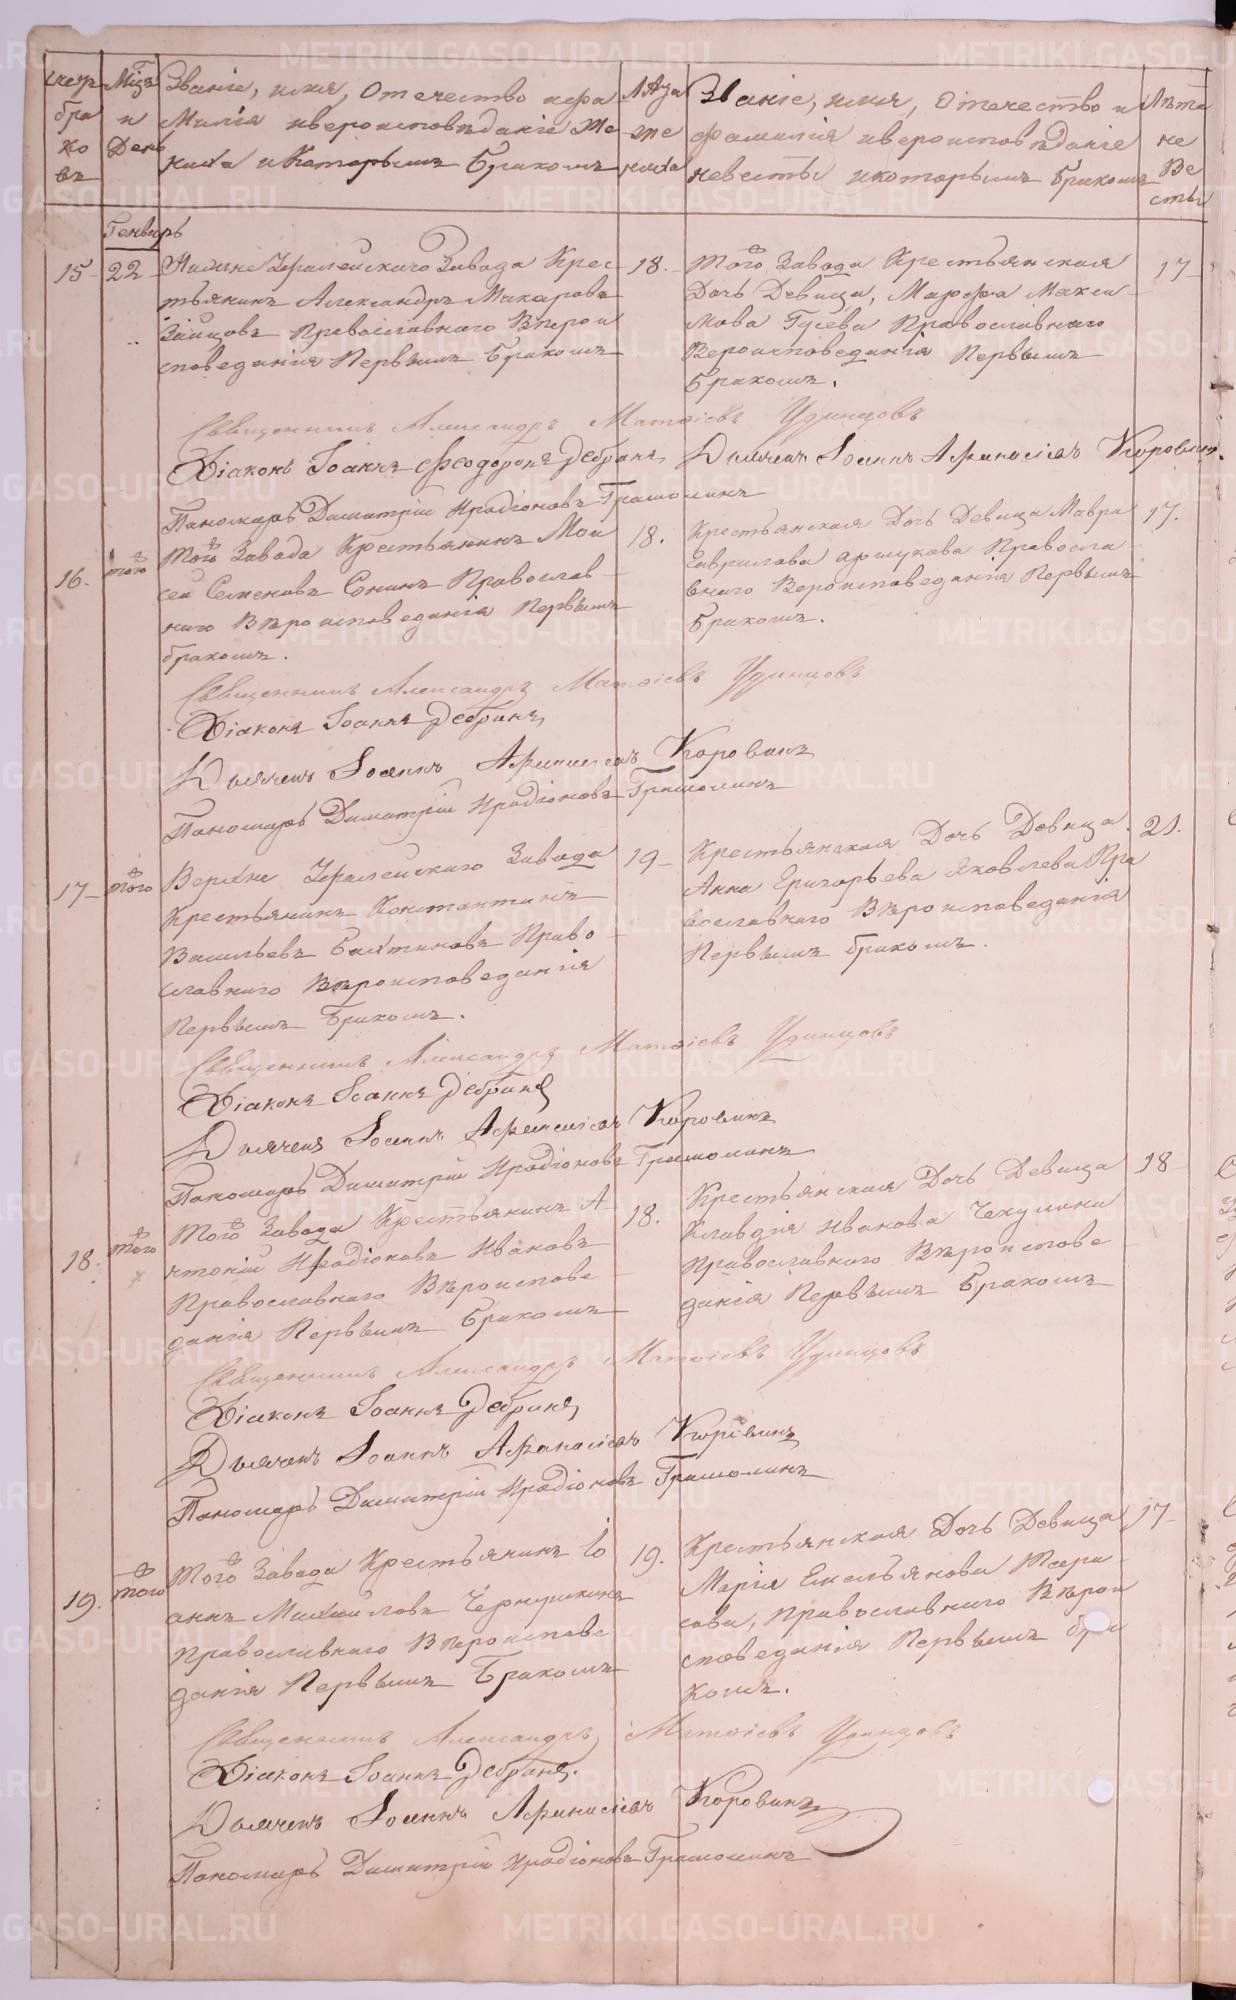 счетъ браковъ
Мѣсяцъ и День
Званіе, имя, Отечество и фа
милія и вероисповѣданіе Же
ниха и Которымъ бракомъ
Лѣта же ниха
Званіе, имя, Отечество и
фамилія и вероисповѣданіе
невесты и которымъ бракомъ
Лѣта не Ве сты
Генварь
15 22 Нижне Уфалейскаго Завода Крес
тьянинъ Александръ Макаровъ
Зайцовъ Православнаго Верои
споведанія Первымъ бракомъ
18.
того Завода Крестьянская
Дочь Девица, Марфа Макси
мова Гусева Православнаго
Вероисповеданія Первымъ
бракомъ.
17
Священникъ Александръ Матѳіевъ Удинцовъ
Діаконъ Іоаннъ Феодоровъ Дебринъ
Дьячекъ Іоаннъ Афанасіевъ Коровинъ.
Пономарь Димитрій Иродіоновъ Грамолинъ
16. того Того Завода Крестьянинъ Мои
сей Семеновъ Сонинъ Православ
наго Вѣроисповеданія Первымъ
бракомъ.
18.
Крестьянская Дочь Девица Мавра
Гаврилова Правосла
внаго Вероисповеданія Первымъ
бракомъ.
17.
Священникъ Александръ Матѳіевъ Удинцовъ
Діаконъ Іоаннъ Дебринъ
Дьячекъ Іоаннъ Афанасіевъ Коровинъ
Пономарь Димитрій Иродіоновъ Грамолинъ
17 того Верхне Уфалейскаго Завода
Крестьянинъ Константинъ
Васильевъ Бахтиновъ Право
славнаго Вѣроисповеданія
Первымъ бракомъ.
19
Крестьянская Дочь Девица
Анна Григорьева Яковлева Пра
вославнаго Вѣроисповеданія
Первымъ бракомъ.
21.
Священникъ Александръ Матѳіевъ Удинцовъ
Діаконъ Іоаннъ Дебринъ
Дьячекъ Іоаннъ Афанасіевъ Коровинъ
Пономарь Димитрій Иродіоновъ Грамолинъ
18. того Того Завода Крестьянинъ А
нтоній Иродіоновъ Ивановъ
Православнаго Вѣроиспове
данія Первымъ бракомъ
18.
Крестьянская Дочь Девица
Клавдія Иванова Чекулина
Православнаго Вѣроиспове
данія Первымъ бракомъ
18
Священникъ Александръ Матѳіевъ Удинцовъ
Діаконъ Іоаннъ Дебринъ
Дьячекъ Іоаннъ Афанасіевъ Коровинъ
Пономарь Димитрій Иродіоновъ Грамолинъ
19. того Того Завода Крестьянинъ Іо
аннъ Михайловъ Чернушкинъ
Православнаго Вѣроиспове
данія Первымъ бракомъ
19.
Крестьянская Дочь Девица
Марія Емельянова
Православнаго Вѣрои
споведанія Первымъ бра
комъ.
17
Священникъ Александръ Матѳіевъ Удинцовъ
Діаконъ Іоаннъ Дебринъ.
Дьячекъ Іоаннъ Афанасіевъ Коровинъ
Пономарь Димитрій Иродіоновъ Грамолинъ
METRIKI.GASO-URAL.RU